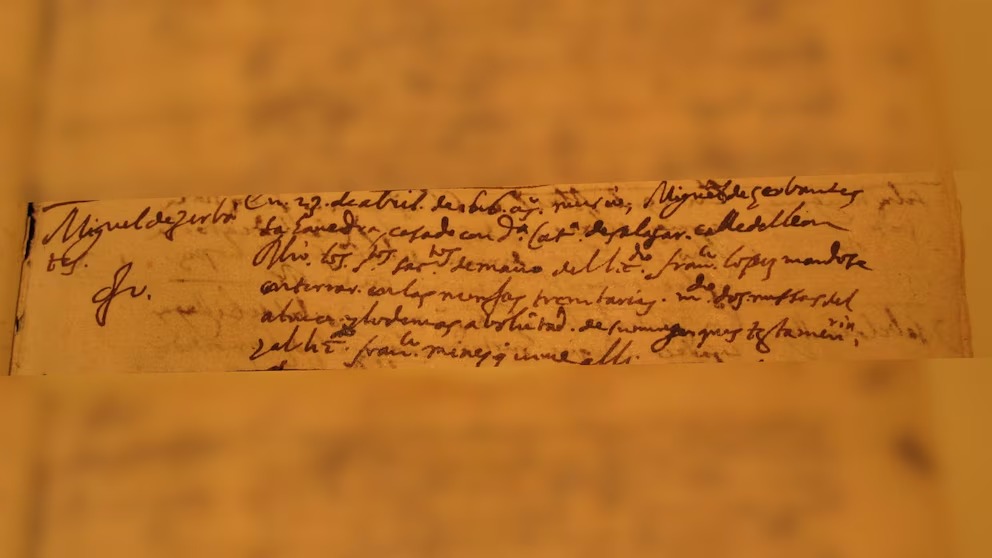 Miguel de zerban
tes.
En. 23. de abril. de 1616. aº. murio, Miguel de zerbantes
sabedra, casado con dª Catª. de salazar. calle del leon
Rbio. los sºs sacºs de mano del liᵈᵒ. franᶜᵒ lopez mandose
enterrar. en las monjas trenitarias. mᵈᵉ dos missas del
alma. y lo demas a boluntad. de su muger ques testamenᵃ
y al liᵈᵒ. franᶜᵒ. mines q uiue alli.